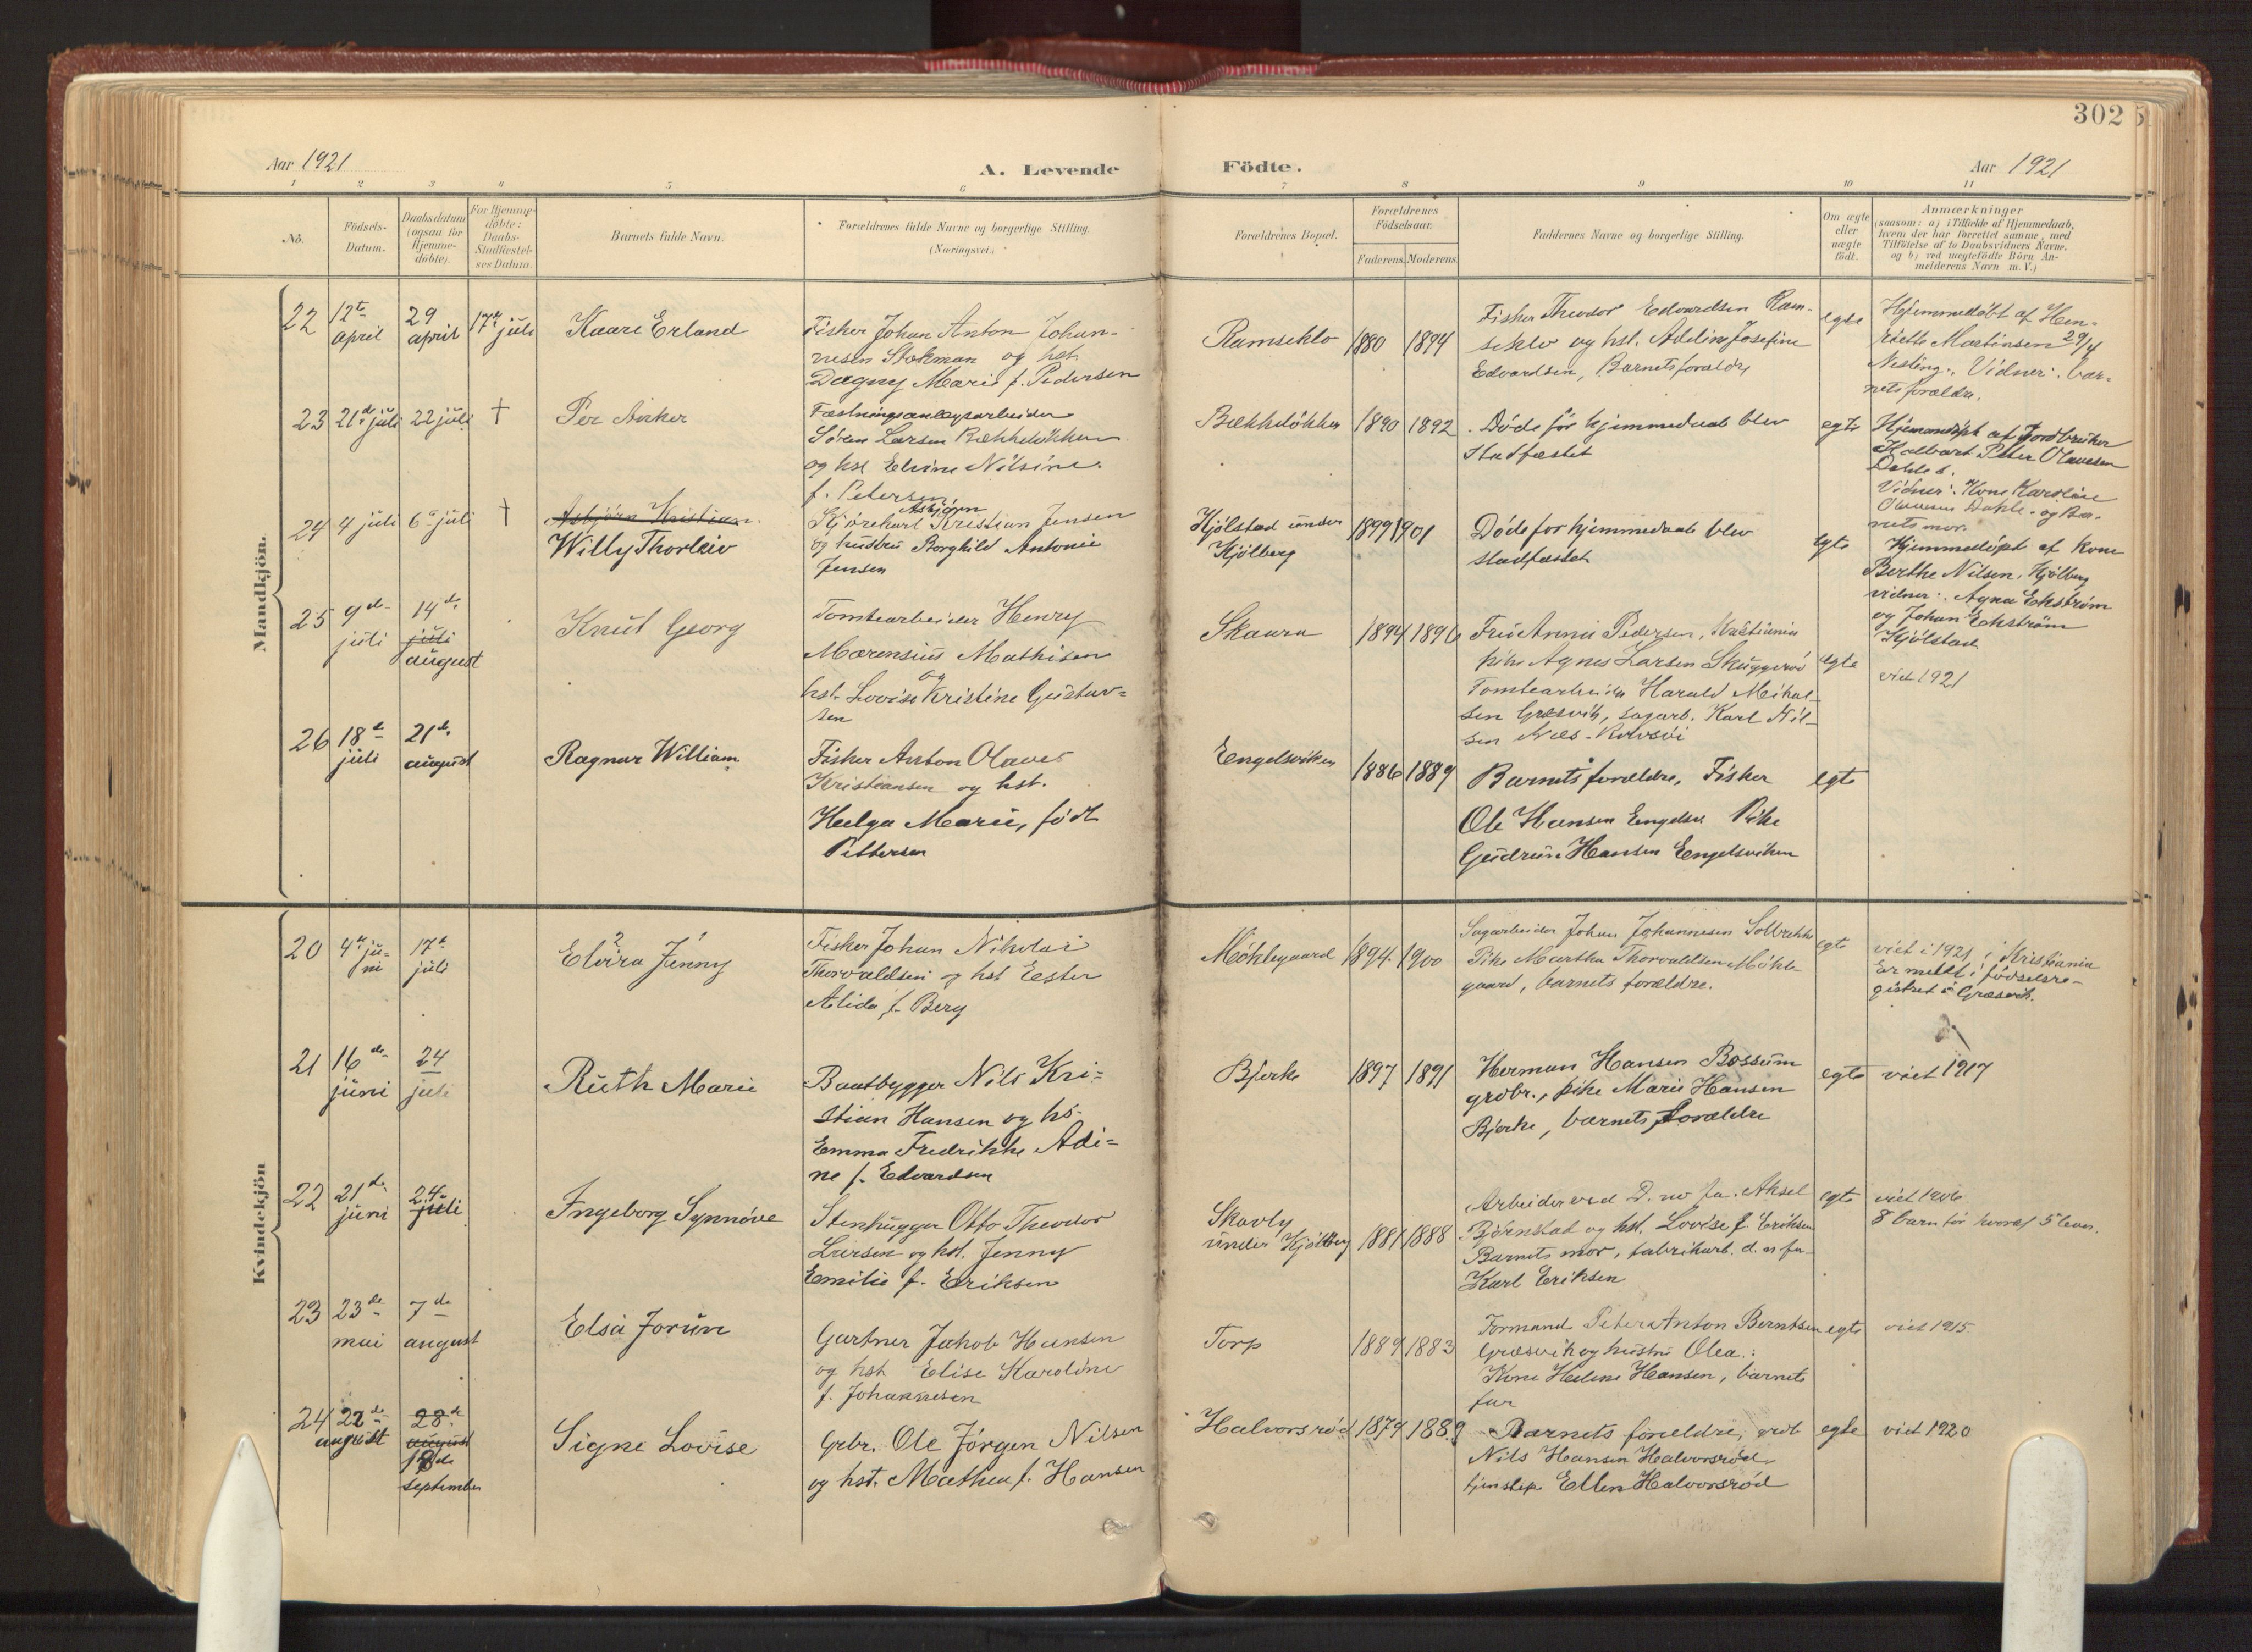 302
Aar 1921
A. Levende
Födte.
Aar 1921
1 2 3 4 5 6 7 8 9 10 11
No.
Födsels-
Datum.
Daabsdatum
(ogsaa for
Hjemme-
döbte).
For Hjemme-
döbte:
Daabs-
Stadfæstel-
ses Datum.
Barnets fulde Navn.
Forældrenes fulde Navne og borgerlige Stilling.
(Næringsvei.)
Forældrenes Bopæl.
Forældrenes
Födselsaar.
Faderens. Moderens.
Faddernes Navne og borgerlige Stilling.
Om ægte
eller
uægte
födt.
Anmærkninger
(saasom: a) i Tilfælde af Hjemmedaab,
hvem der har forrettet samme, med
Tilföielse af to Daabsvidners Navne.
og b) ved uægtefödte Börn An-
melderens Navn m. V.)
Mandkjön.
22
12te
april
29
april
17de juli
Kaare Erland
Fisker Johan Anton Johan-
nesen Stokman og hst.
Dagny Marie f. Pedersen
Ramseklo
1880
1894
Fisker Theodor Edvardsen Ram-
seklo og hst. Adeline Josefine
Edvardsen, Barnets forældre
egte
Hjemmedøbt af Hen-
riette Martinsen 29/4
Vidner: bar-
nets forældre.
23
21de juli
22 juli
†
Per Anker
Fæstningsanlægsarbeider
Søren Larsen Bækkeløkken
og hst Elvine Nilsine
f. Petersen
Bækkeløkken
1890
1892
Døde før hjemmedaab blev
stadfæstet
egte
Hjemmedøpt af Jordbruker
Halbart Peter Olavesen
Dahle.
Vidner: Kone Karoline
Olavesen Dahle og Bar-
nets mor.
24
4 juli
6te juli
†
Asbjørn Kristian
Willy Thorleiv
Asbjørn
Kjørekarl Kristian Jensen
og hustru Borghild Antonie
Jensen
Kjølstad under
Kjølberg
1899
1901
Døde før hjemmedaab blev
stadfæstet
egte
Hjemmedøpt af Kone
Berthe Nilsen, Kjølberg
vidner: Agna Ekstrøm
og Johan Ekstrøm
Kjølstad
25
9de
juli
14de
juli
august
Knut Georg
Tomtearbeider Henry
Marensius Mathisen
og
hst. Lovise Kristine Gustav-
sen
Skaara
1894
1896
Fru Anna Pedersen, Kristiania
pike Agnes Larsen Skuggerød
Tomtearbeider Harald Mikal-
sen Græsvik, sagarb. Karl Nil-
sen Næs-Kraakøi
egte
viet 1921
26
18de
juli
21de
august
Ragnar William
Fisker Anton Olaves
Kristiansen og hst.
Helga Marie, født
Pettersen
Engelsviken
1886
1889
Barnets forældre, Fisker
Ole Hansen Engelsv Pike
Gudrun Hansen Engelsviken
egte
Kvindekjön
20
4de ju-
ni
17de
juli
2 1
Elvira Jenny
Fisker Johan Nikolai
Thorvaldsen og hst Ester
Alida f. Berg
Møklegaard
1894
1900
Sagarbeider Johan Johannesen Solbrekke
Pike Martha Thorvaldsen Møkle-
gaard, barnets forældre.
egte
viet i 1921 i Kristiania
Er meldt i fødselsre-
gistret i Græsvik.
21
16de
juni
24
juli
Ruth Marie
Baatbygger Nils Kri-
stian Hansen og hs.
Emma Fredrikke Adi-
ne f. Edvardsen
Bjerke
1897
1891
Herman Hansen Bossum
grdbr., pike Marie Hansen
Bjerke, barnets forældre
egte
viet 1917
22
21de
juni
24
juli
Ingeborg Synnøve
Stenhugger Otto Theodor
Larsen og hst. Jenny
Emilie f. Eriksen
Skovly
under Kjølberg
1881
1888
Arbeider ved D. no fa. Aksel
Bjørnstad og hst. Lovise f. Eriksen
Barnets mor, fabrikarb. d. no fa-
Karl Eriksen
egte
viet 1906
8 barn før hvoraf 5 lever.
23
23de
mai
7de
august
Elsa Jorun
Gartner Jakob Hansen
og hst Elise Karoline
f. Johannesen
Torp
1889
1883
Formand Peter Anton Berntsen
Græsvik og hustru Olea.:
Kone Helene Hansen, barnets
far
egte
viet 1915
24
22de
august
28de
august
18de
september
Signe Lovise
Grbr. Ole Jørgen Nilsen
og hst. Mathea f. Hansen
Halvorsrød
1879
1889
Barnets forældre,
Nils Hansen Halvorsrød
tjenstepi. Ellen Halvorsrød
egte
viet 1920